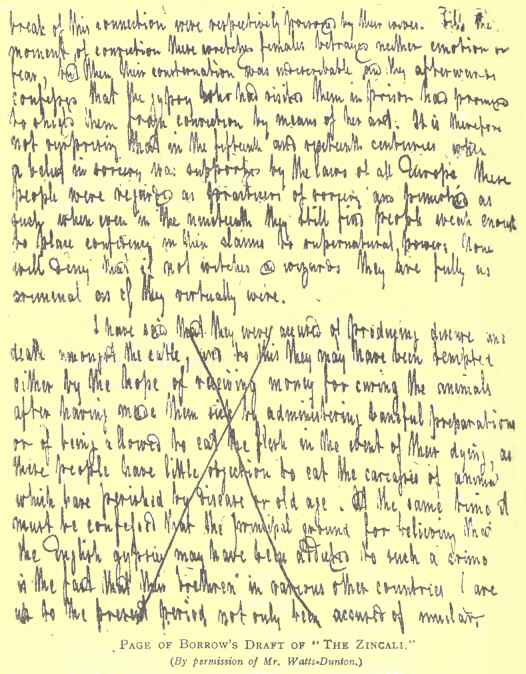 break of this connection were respectively poisoned by their wives. Till the
moment of conviction these wretched females betrayed neither emotion or
fear, but then their consternation was indescribable and they afterwards
confessed that the gypsy who had visited them in prison had promised
to shield them from conviction by means of her art. It is therefore
not surprising that in the fifteenth and sixteenth centuries when
a belief in sorcery was supported by the laws of all Europe these
people were regarded as practisers of sorcery and punished as
such, when even in the nineteenth they still find people weak enough
to place confidence in their claims to supernatural power. None
will deny that if not witches or wizards they are fully as
criminal as if they virtually were.
I have said that they were accused of producing disease and
death amongst the cattle, and to this they may have been tempted
either by the hope of receiving money for curing the animals
after having made them sick by administering baneful preparations
or of being allowed to eat the flesh in the event of their dying, as
these people have little objection to eat the carcases of animals
which have perished by disease or old age. At the same time it
must be confessed that the principal ground for believing that
the English gypsies may have been addicted to such a crime
is the fact that their brethren in various other countries are
up to the present period not only been accused of similar
PAGE OF BORROW'S DRAFT OF "THE ZINCALI."
(By permission of Mr. Watts-Dunton.)